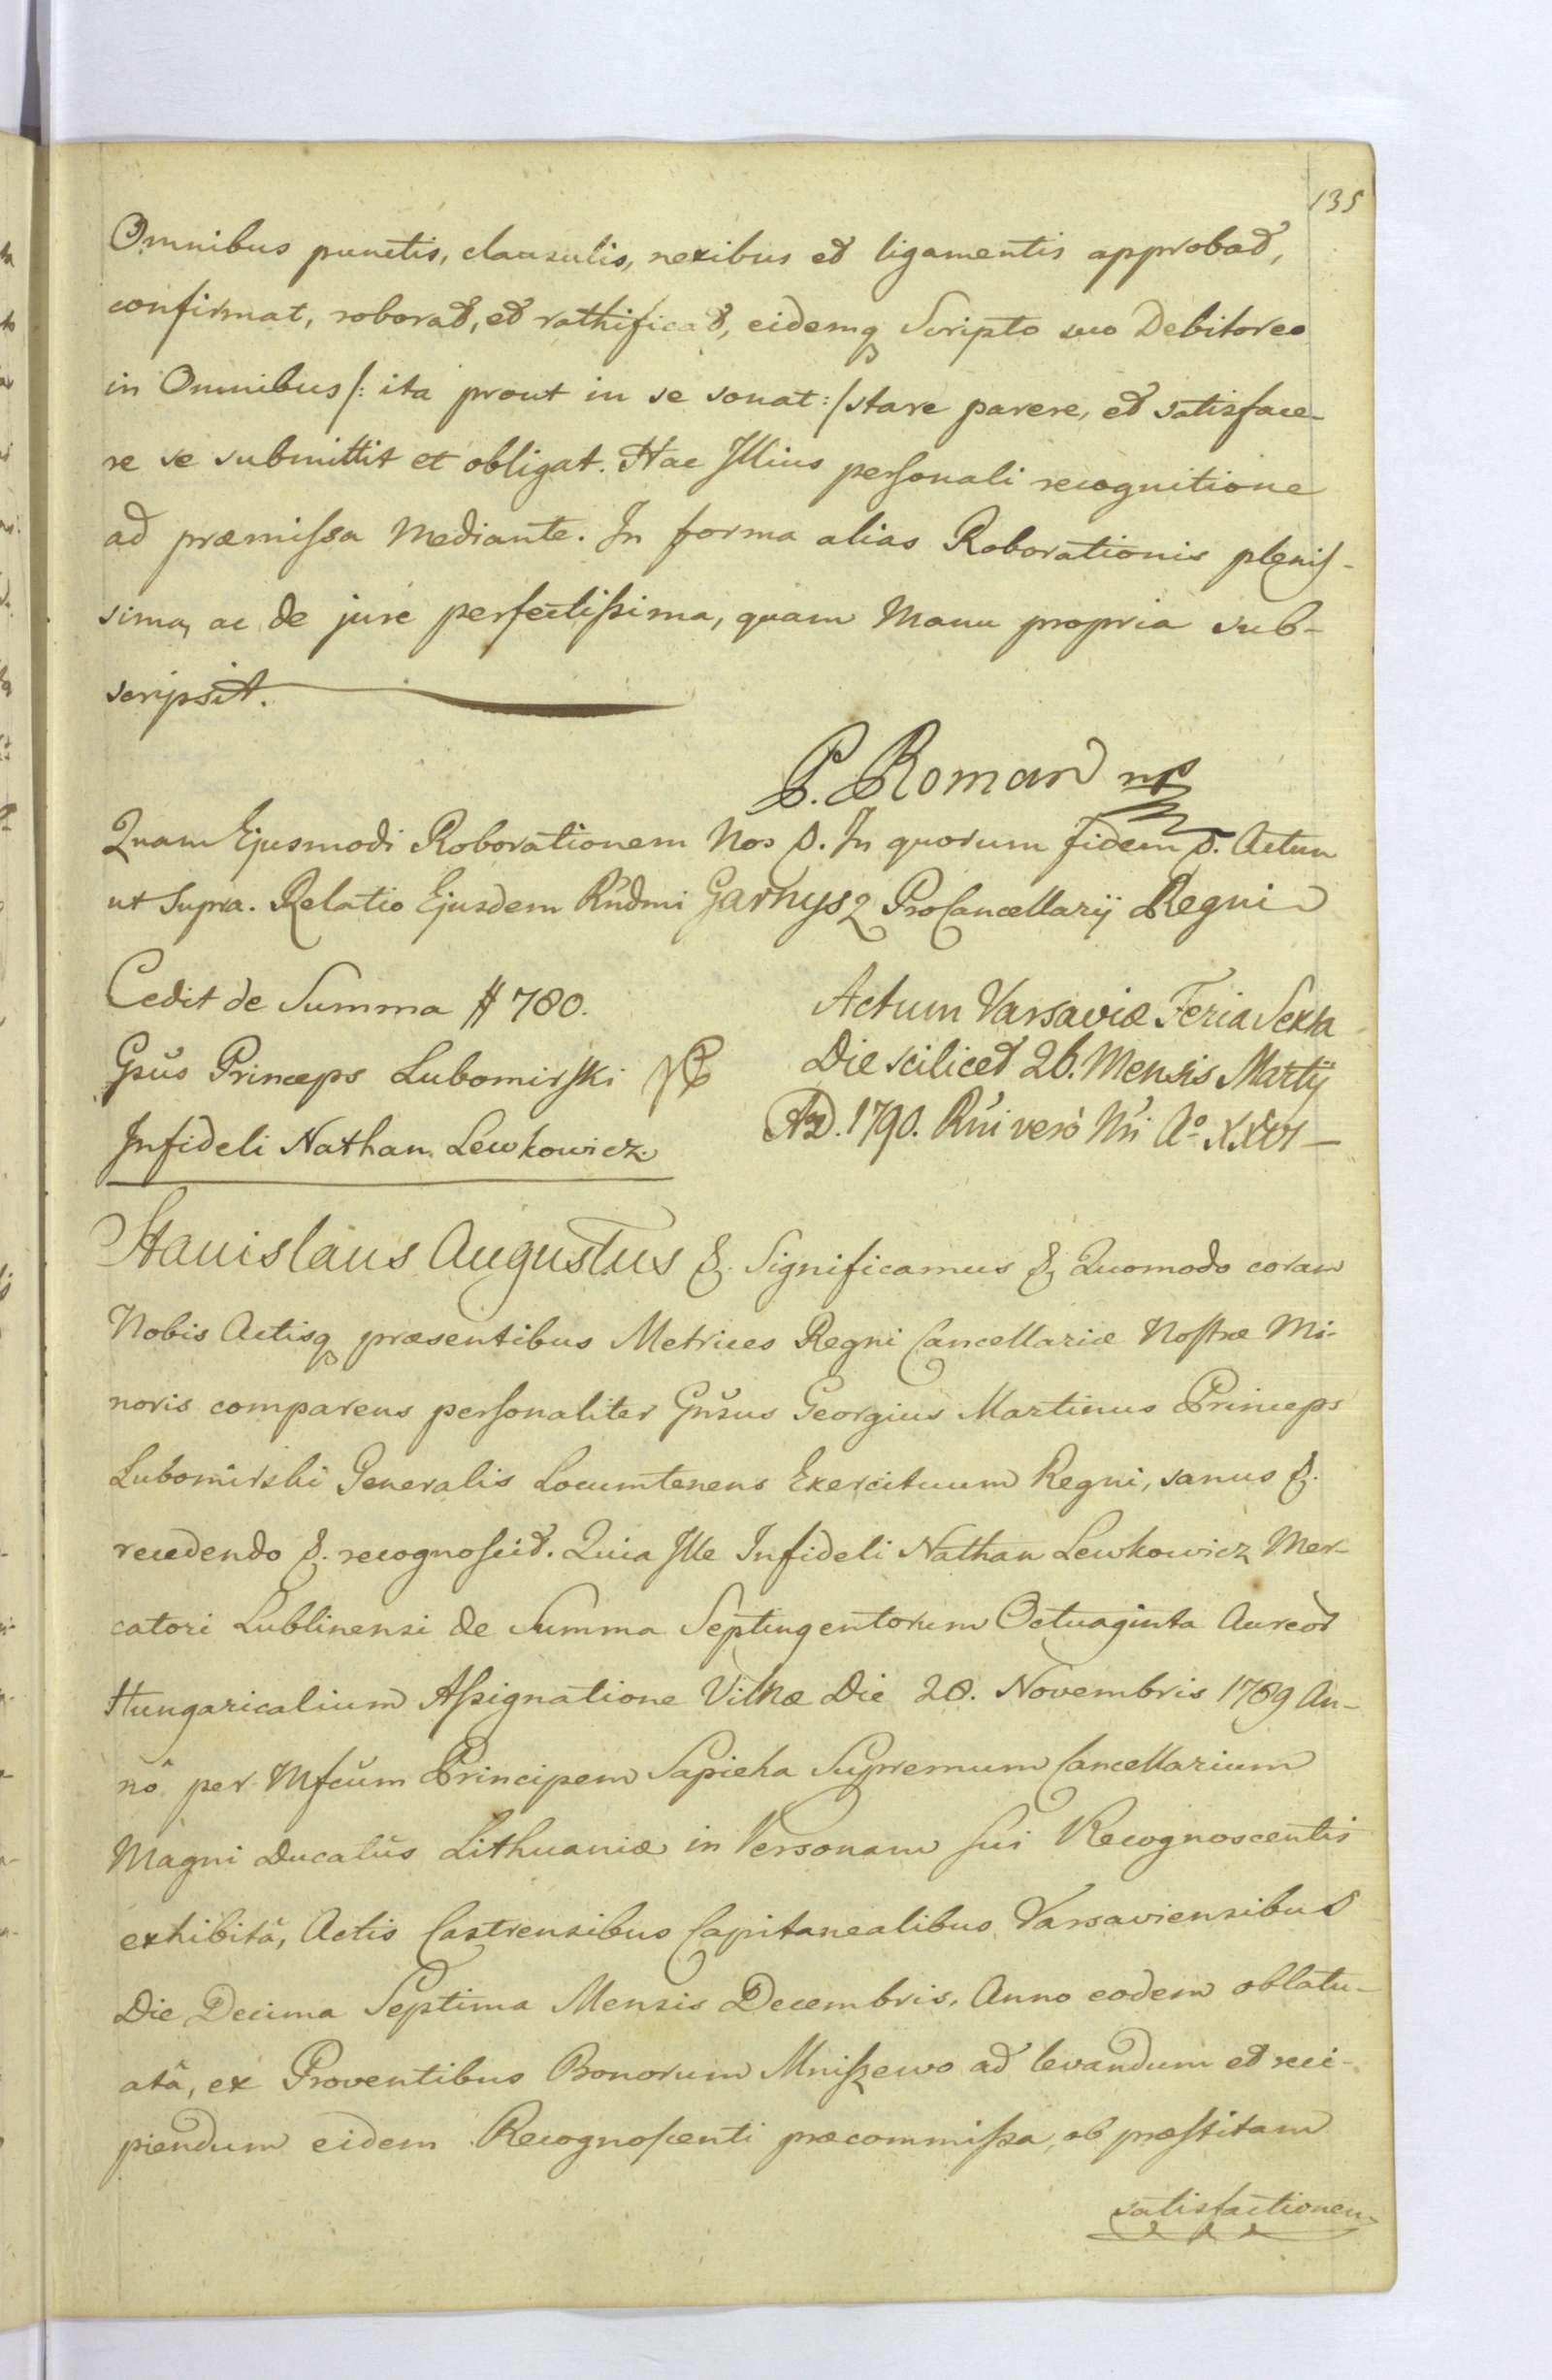 135
Omnibus punctis, clausulis, nexibus et ligamentis approbat,
confirmat, roborat, et rathificat, eidemq Scripto suo Debitoreo
in Omnibus /: ita prout in se sonat :/ stare parere, et satisface-
re se submittit et obligat. Hac Illius personali recognitione
ad præmissa Mediante. In forma alias Roborationis plenis-
sima, ac de jure perfectissima, quam Manu propria sub-
scripsit.
P. Roman mp
Quam Ejusmodi Roborationem Nos &. In quorum fidem &. Actum
ut Supra. Relatio Ejusdem Rndmi Garnysz ProCancellarij Regni
Cedit de Summa # 780.
Gsus Princeps Lubomirski
Infideli Nathan Lewkowicz.
Actum Varsaviæ Feria Sexta
Die scilicet 26. Mensis Martij
AD. 1790. Rni vero Nri Ao XXVI
Stanislaus Augustus &. Significamus & Quomodo coram
Nobis Actisq præsentibus Metrices Regni Cancellariæ Nostræ Mi-
noris comparens personaliter Gnsus Georgius Martinus Princeps
Lubomirski Generalis Locumtenens Exercituum Regni, sanus &.
recedendo &. recognoscit. Quia Ille Infideli Nathan Lewkowicz Mer-
catori Lublinensi de Summa Septingentorum Octuaginta Aureor
Hungaricalium Assignatione Vilnæ Die 28. Novembris 1789 An-
nô per Mfcum Principem Sapieha Supremum Cancellarium
Magni Ducatûs Lithuaniæ in Personam sui Recognoscentis
exhibitâ, Actis Castrensibus Capitanealibus Varsaviensibus
Die Decima Septima Mensis Decembris, Anno eodem oblatu-
atâ, ex Proventibus Bonorum Mniszewo ad levandum et reci-
piendum eidem Recognoscenti præcommissa, ob præstitam
satisfactionem